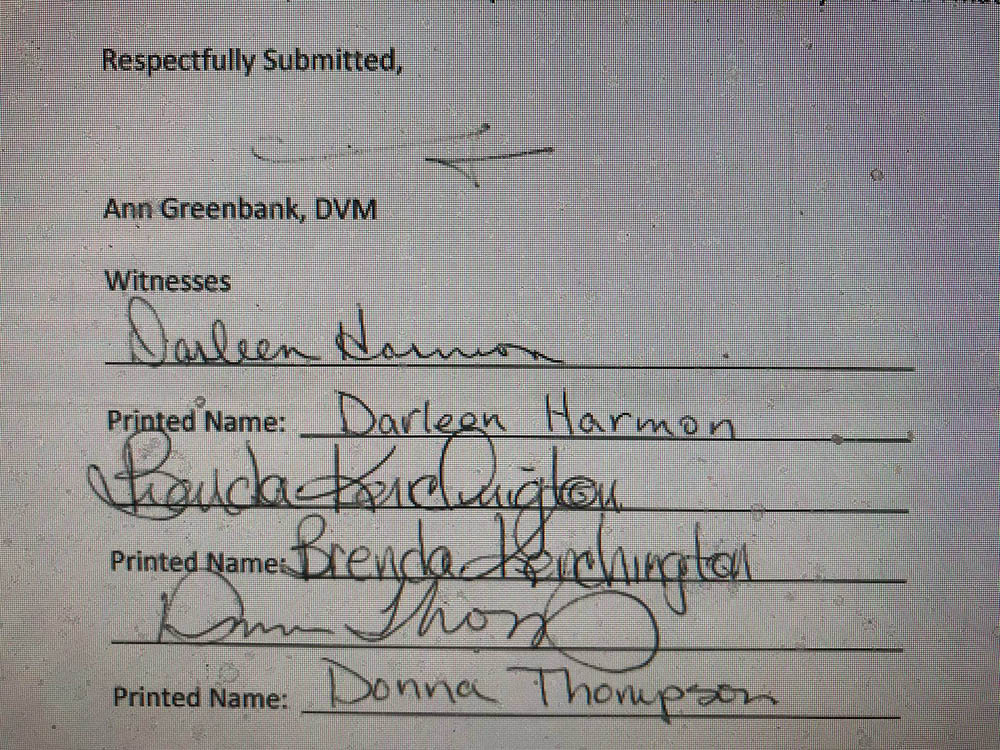 Respectfully Submitted,
Ann Greenbank, DVM
Witnesses
Darleen Harmon
Printed Name: Darleen Harmon
Brenda Kerchington
Printed Name: Brenda Kerchington
Printed Name: Donna Thompson